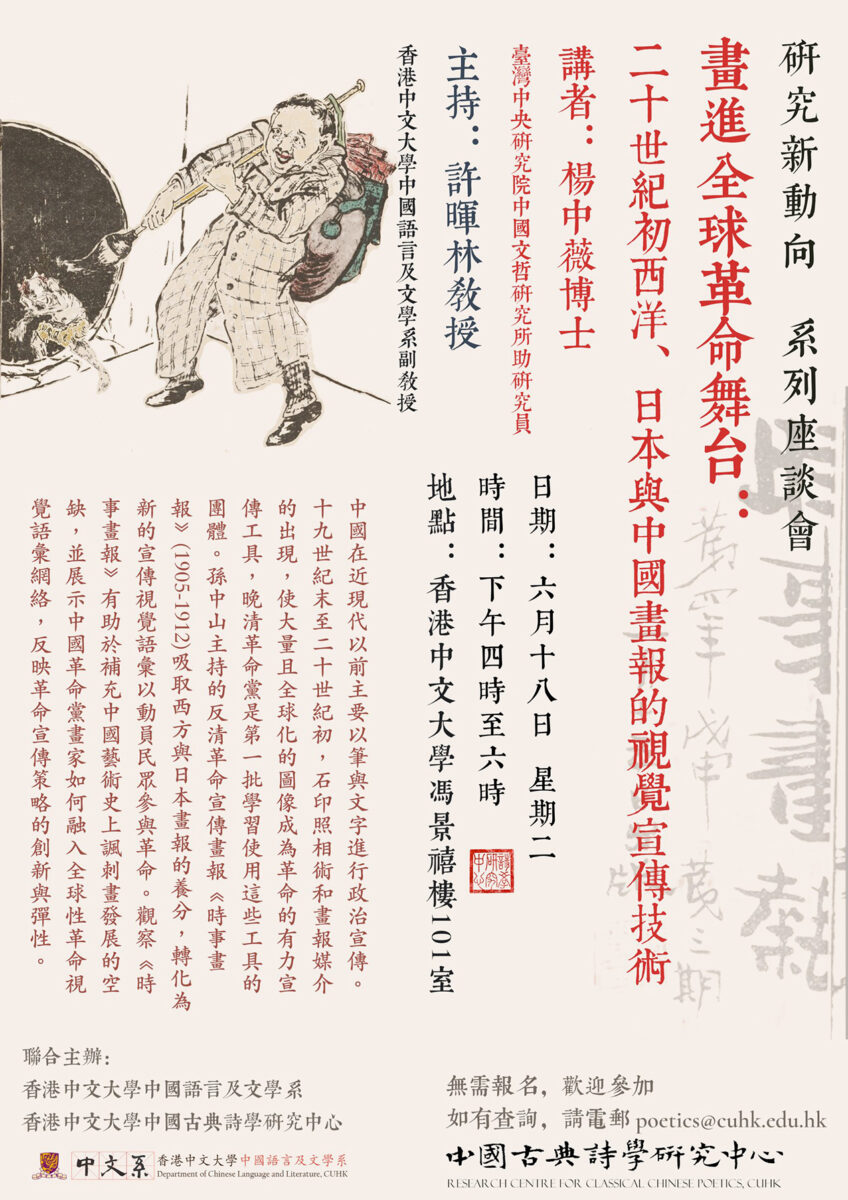 研究新動向　系列座談會
畫進全球革命舞台：
二十世紀初西洋、日本與中國畫報的視覺宣傳技術
講者：楊中薇博士
臺灣中央研究院中國文哲研究所助研究員
主持：許暉林教授
香港中文大學中國語言及文學系副教授
日期：六月十八日 星期二
時間：下午四時至六時
地點：香港中文大學馮景禧樓101室
中國在近現代以前主要以筆與文字進行政治宣傳。
十九世紀末至二十世紀初，石印照相術和畫報媒介
的出現，使大量且全球化的圖像成為革命的有力宣
傳工具，晚清革命黨是第一批學習使用這些工具的
團體。孫中山主持的反清革命宣傳畫報《時事畫
報》(1905-1912)吸取西方與日本畫報的養分，轉化為
新的宣傳視覺語彙以動員民眾參與革命。觀察《時
事畫報》有助於補充中國藝術史上諷刺畫發展的空
缺，並展示中國革命黨畫家如何融入全球性革命視
覺語彙網絡，反映革命宣傳策略的創新與彈性。
事畫報
第三期
聯合主辦：
香港中文大學中國語言及文學系
香港中文大學中國古典詩學研究中心
中文系
香港中文大學中國語言及文學系
Department of Chinese Language and Literature, CUHK
無需報名，歡迎參加
如有查詢，請電郵 poetics@cuhk.edu.hk
中國古典詩學研究中心
RESEARCH CENTRE FOR CLASSICAL CHINESE POETICS, CUHK